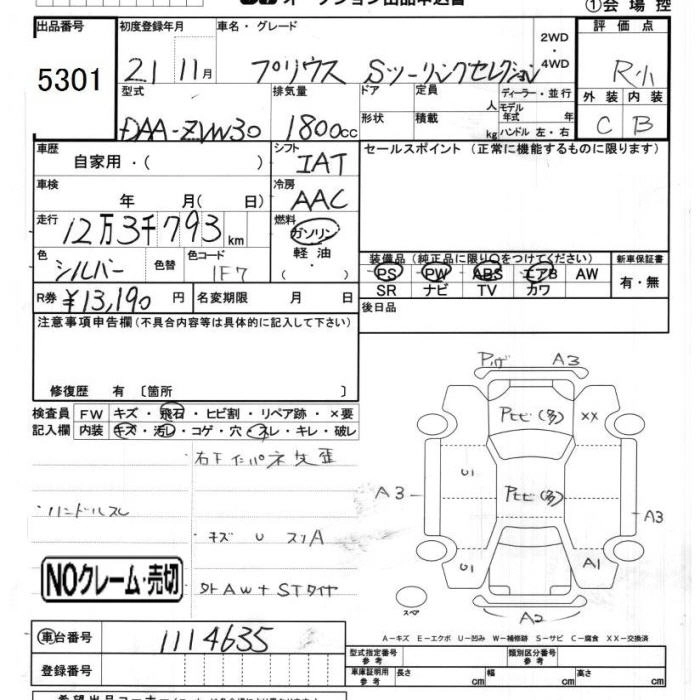 オークション出品申込書
①会場控
出品番号 初度登録年月 車名・グレード 評価点
5301 21 11月 プリウス Sツーリングセレクション 2WD・4WD R小
型式 排気量 ドア 定員 人 ディーラー・並行 外装 内装
DAA-ZVW30 1800cc 形状 積載 kg モデル年式 年 ハンドル 左・右 C B
車歴 自家用・( ) シフト IAT セールスポイント(正常に機能するものに限ります)
車検 年 月( 日) 冷房 AAC
走行 12万3千793km 燃料 ガソリン
軽油
( ・ )
色 シルバー 色替 色コード 1F7 装備品(純正品に限り○をつけてください) 新車保証書
PS PW ABS エアB AW 有・無
SR ナビ TV カワ
R券 ¥13,190円 名変期限 月 日 後日品
注意事項申告欄(不具合内容等は具体的に記入して下さい)
修復歴 有〔箇所 〕
検査員 FW キズ・飛石・ヒビ割・リペア跡・×要
記入欄 内装 キズ・汚レ・コゲ・穴・スレ・キレ・破レ
A3
Pヒビ(多) XX
U1 Pヒビ(多)
A3 A3
U1 A1
A2
スペア
・ハンドルスレ
・キズ U スリA
NOクレーム・売切
外AW+STタイヤ
A-キズ E-エクボ U-凹み W-補修跡 S-サビ C-腐食 XX-交換済
車台番号 1114635 型式指定番号 参考 類別区分番号 参考
登録番号 車庫証明用 参考 長さ cm 幅 cm 高さ cm